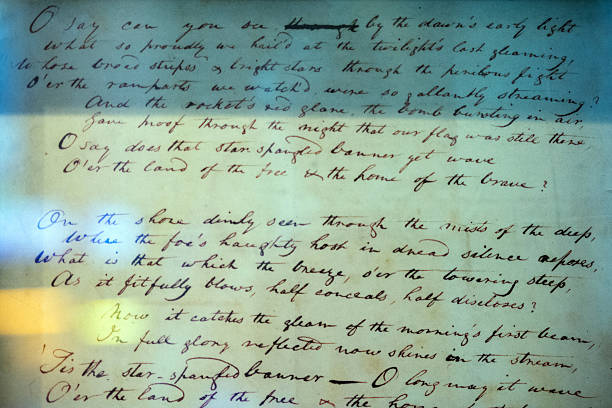 O say can you see through by the dawn's early light
What so proudly we hail'd at the twilight's last gleaming,
Whose broad stripes & bright stars through the perilous fight
O'er the ramparts we watch'd were so gallantly streaming?
And the rocket's red glare, the bomb bursting in air,
Gave proof through the night that our flag was still there,
O say does that star spangled banner yet wave
O'er the land of the free & the home of the brave?
On the shore dimly seen through the mists of the deep,
Where the foe's haughty host in dread silence reposes,
What is that which the breeze, o'er the towering steep,
As it fitfully blows, half conceals, half discloses?
Now it catches the gleam of the morning's first beam,
In full glory reflected now shines in the stream,
'Tis the star-spangled banner — O long may it wave
O'er the land of the free & the